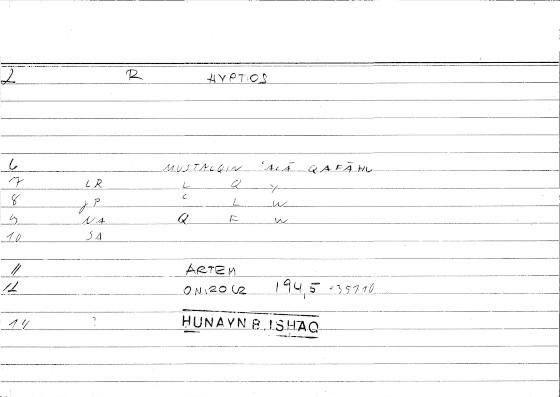 2 R HYPTIOS
6 MUSTALQIN ʿALĀ QAFĀHU
7 LR L Q Y
8 JP ʿ L W
9 NA Q F W
10 SA
11 ARTEM
12 ONIROCR 194,5
14 ? HUNAYN B. ISHAQ